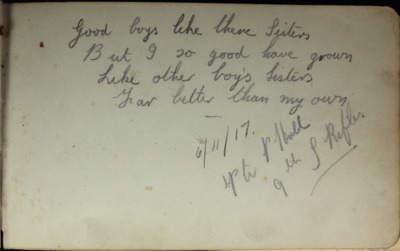 Good boys like there Sisters
But I so good have grown
Like other boy's Sisters
Far better than my own
6/11/17.
Pte P Hall
9th S Rifles